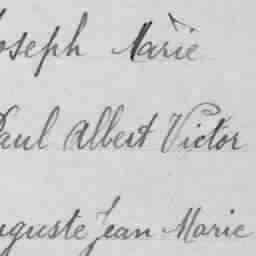 Joseph Marie
Paul Albert Victor
Auguste Jean Marie